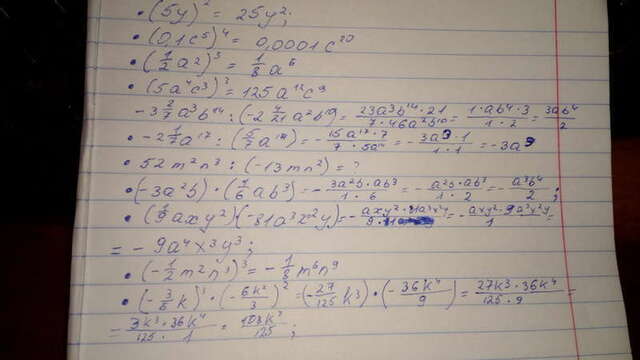 • (5y)² = 25y²;
• (0,1c⁵)⁴ = 0,0001c²⁰
• (1/2 a²)³ = 1/8 a⁶
• (5a⁴c³)³ = 125a¹²c⁹
-3 2/7 a³b¹⁴ : (-2 4/21 a²b¹⁰) = 23a³b¹⁴·21 / 7·46a²b¹⁰ = 1·ab⁴·3 / 1·2 = 3ab⁴/2
• -2 1/7 a¹⁷ : (5/7 a¹⁴) = - 15a¹⁷·7 / 7·5a¹⁴ = - 3a³·1 / 1·1 = -3a³
• 52m²n³ : (-13mn²) = ?
• (-3a²b)·(1/6 ab³) = - 3a²b·ab³ / 1·6 = - a²b·ab³ / 1·2 = - a³b⁴/2 ;
• (1/9 axy²)(-81a³x²y) = - axy²·81a³x²y / 9 = - axy²·9a³x²y / 1 =
= - 9a⁴x³y³;
• (-1/2 m²n³)³ = - 1/8 m⁶n⁹
• (-3/5 k)³·(-6k²/3)² = (-27/125 k³)·(-36k⁴/9) = 27k³·36k⁴ / 125·9 =
= 3k³·36k⁴ / 125·1 = 108k⁷/125 ;